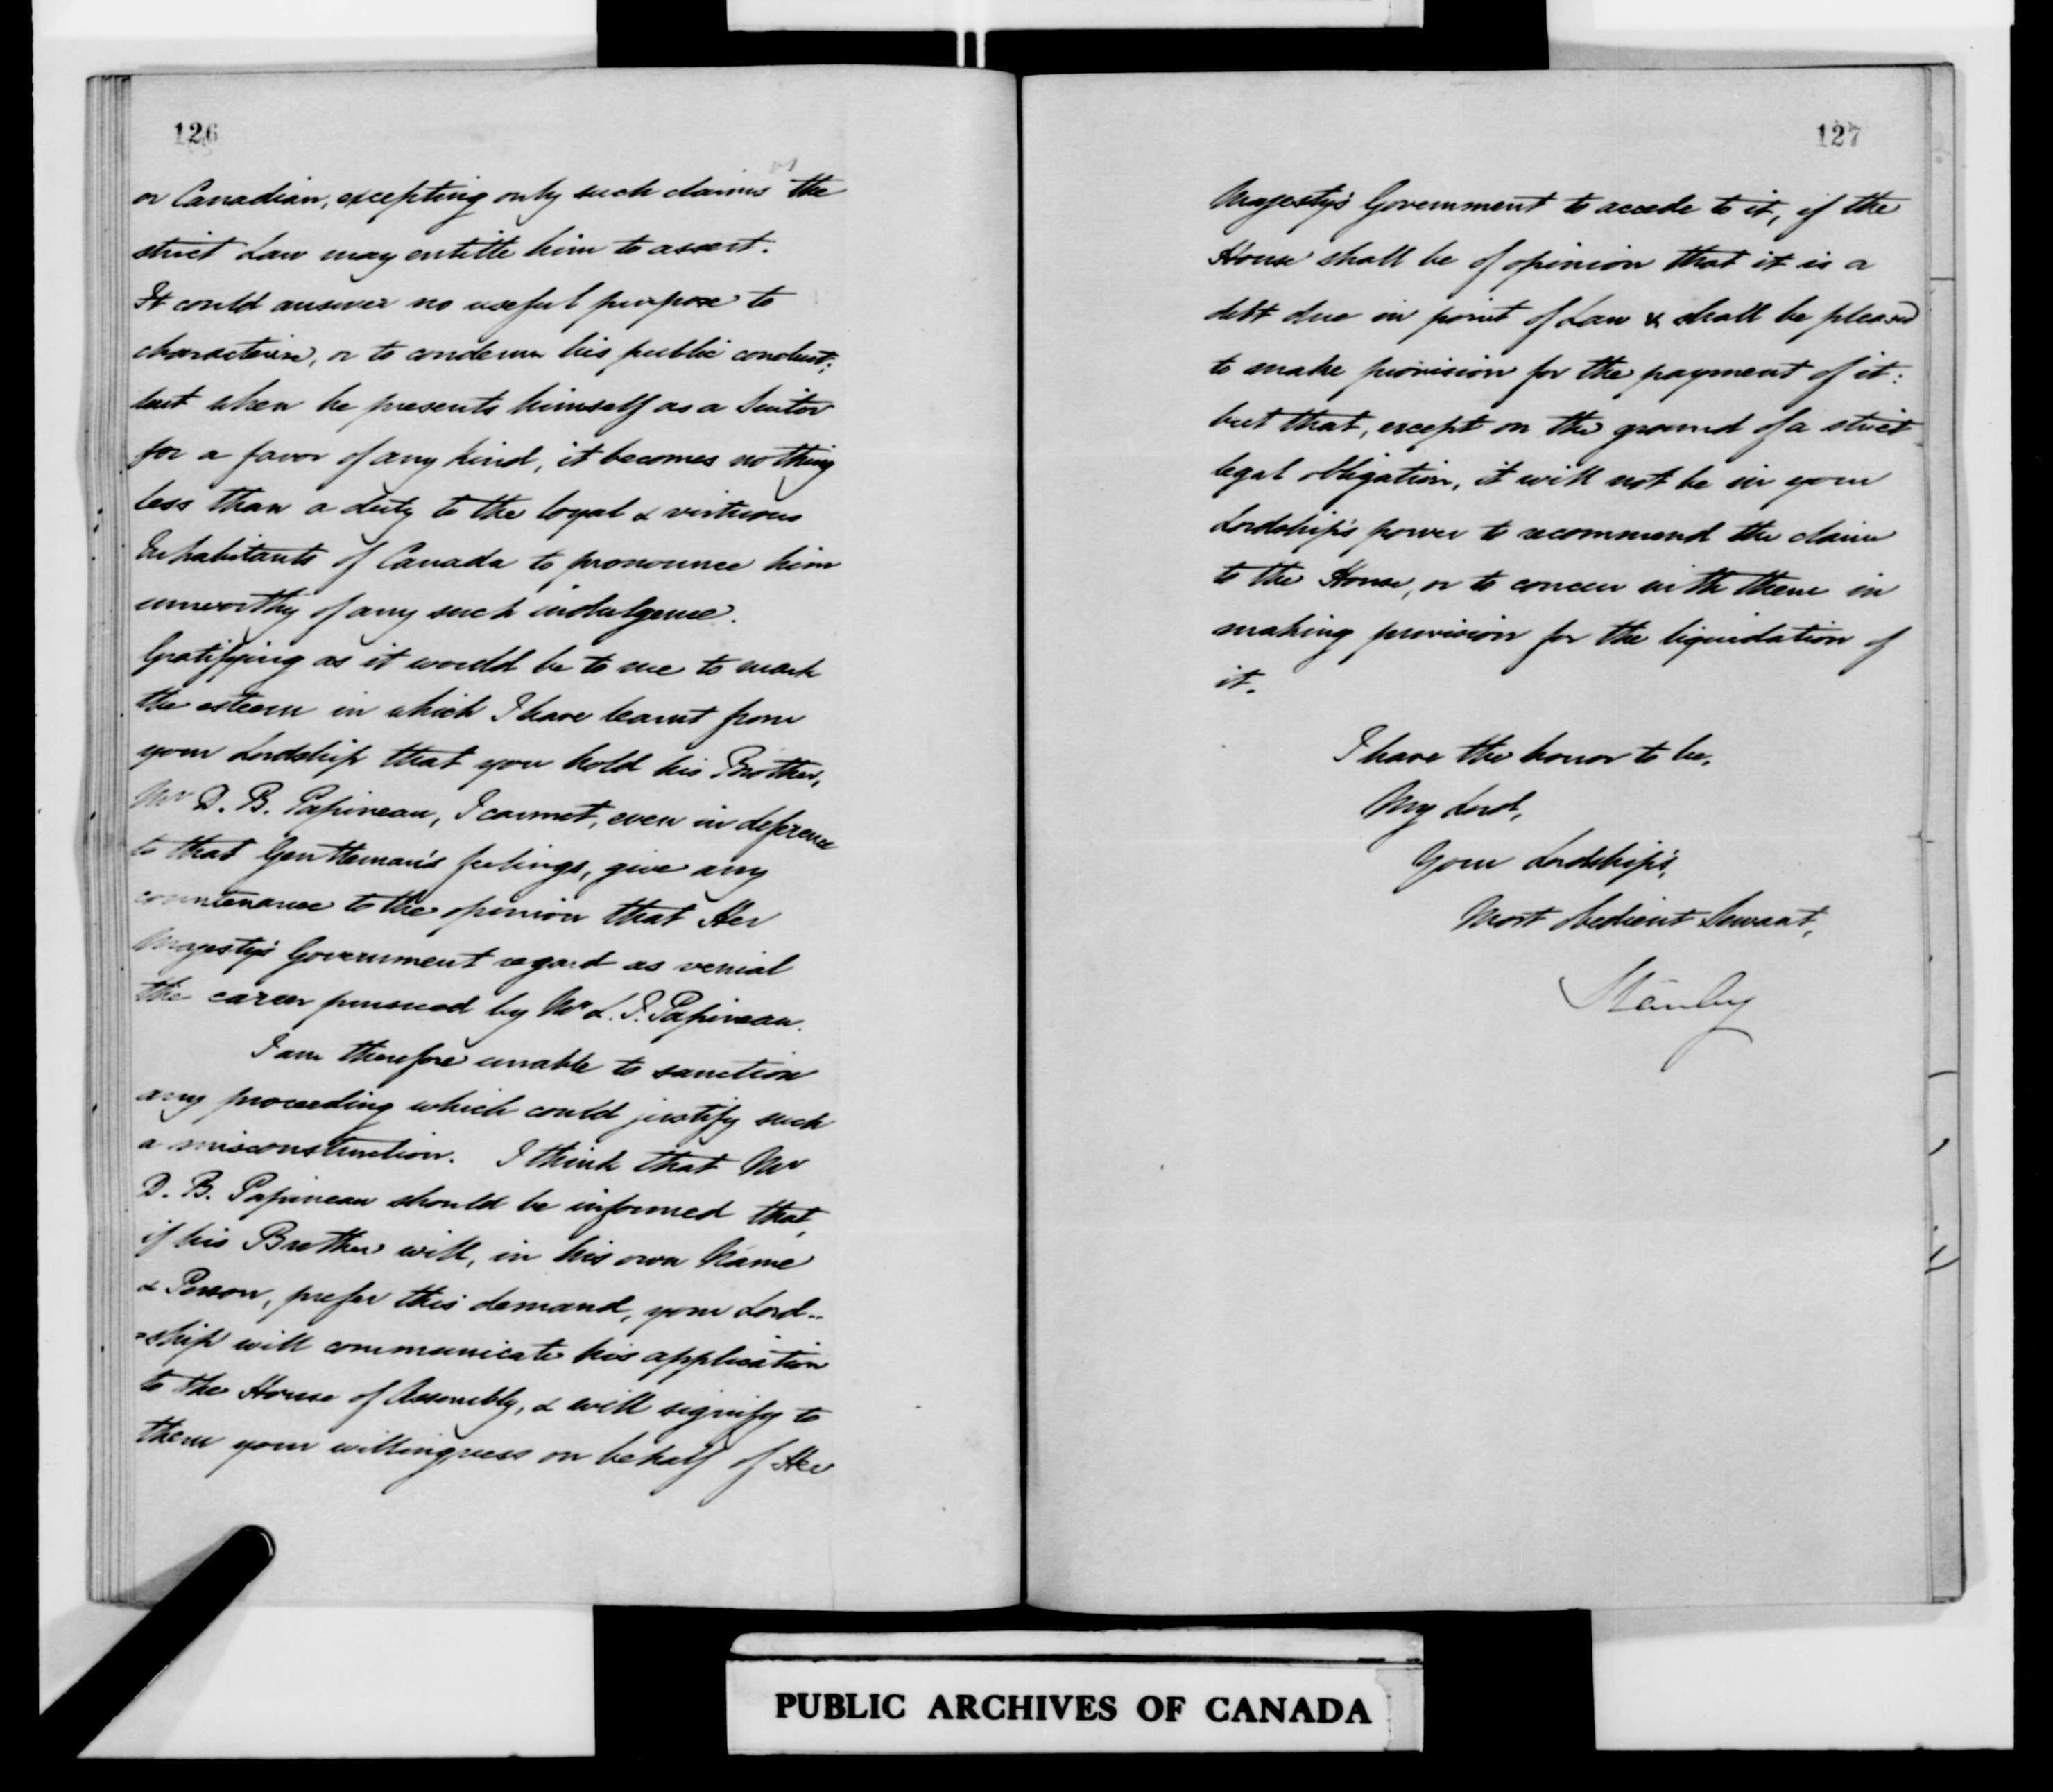 126
or Canadian, excepting only such claims as the
strict Law may entitle him to assert.
It could answer no useful purpose to
characterise, or to condemn his public conduct;
but when he presents himself as a Suitor
for a favor of any kind, it becomes nothing
less than a duty to the loyal & virtuous
Inhabitants of Canada to pronounce him
unworthy of any such indulgence.
Gratifying as it would be to me to mark
the esteem in which I have learnt from
your Lordship that you hold his Brother,
Mr D. B. Papineau, I cannot, even in deference
to that Gentleman's feelings, give any
countenance to the opinion that Her
Majesty's Government regard as venial
the career pursued by Mr L. J. Papineau.
I am therefore unable to sanction
any proceeding which could justify such
a misconstruction. I think that Mr
D. B. Papineau should be informed that,
if his Brother will, in his own Name
& Person, prefer this demand, your Lord-
=ship will communicate his application
to the House of Assembly, & will signify to
them your willingness on behalf of Her
127
Majesty's Government to accede to it, if the
House shall be of opinion that it is a
debt due in point of Law & shall be pleased
to make provision for the payment of it:
but that, except on the ground of a strict
legal obligation, it will not be in your
Lordship's power to recommend the claim
to the House, or to concur with them in
making provision for the liquidation of
it.
I have the honor to be,
My Lord,
Your Lordship's,
Most obedient Servant,
Stanley
PUBLIC ARCHIVES OF CANADA